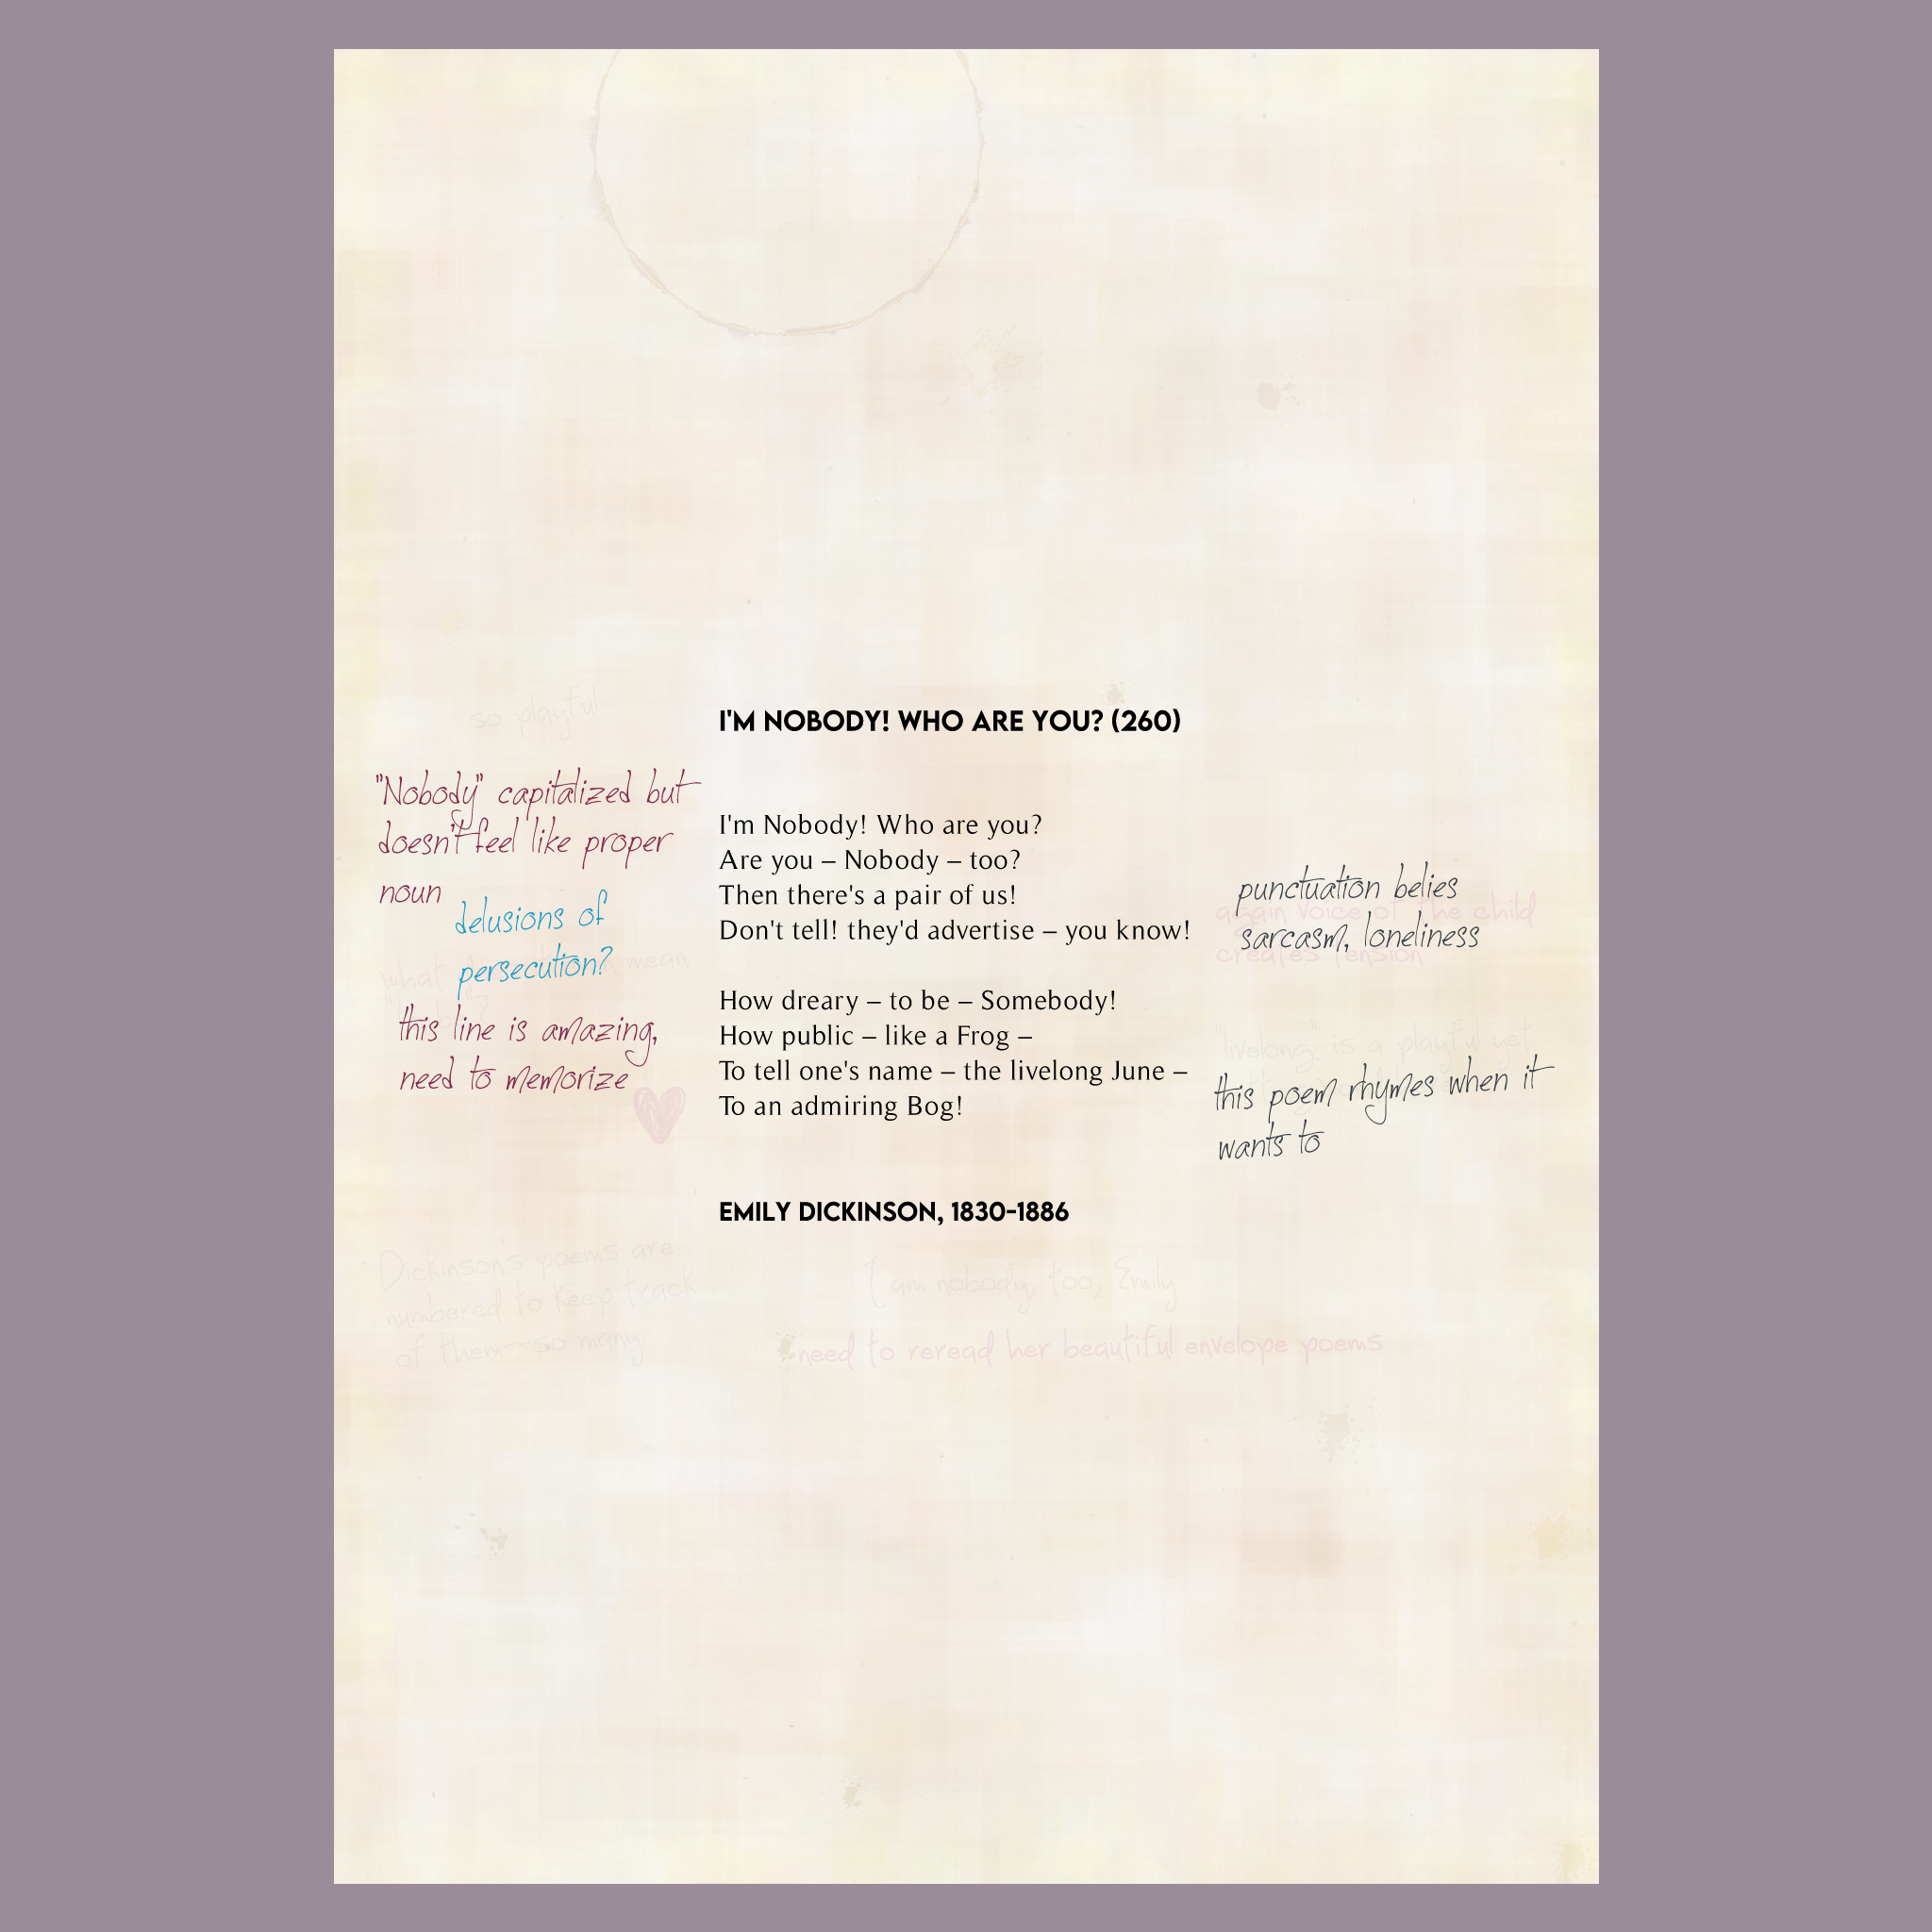 so playful
I'M NOBODY! WHO ARE YOU? (260)
"Nobody" capitalized but
doesn't feel like proper
noun
delusions of
persecution?
what mean
this line is amazing,
need to memorize
I'm Nobody! Who are you?
Are you – Nobody – too?
Then there's a pair of us!
Don't tell! they'd advertise – you know!
How dreary – to be – Somebody!
How public – like a Frog –
To tell one's name – the livelong June –
To an admiring Bog!
punctuation belies
sarcasm, loneliness
again voice of the child
creates tension
"livelong" is a playful yet
this poem rhymes when it
wants to
EMILY DICKINSON, 1830-1886
Dickinson's poems are
numbered to keep track
of them--so many
I am nobody, too, Emily
need to reread her beautiful envelope poems